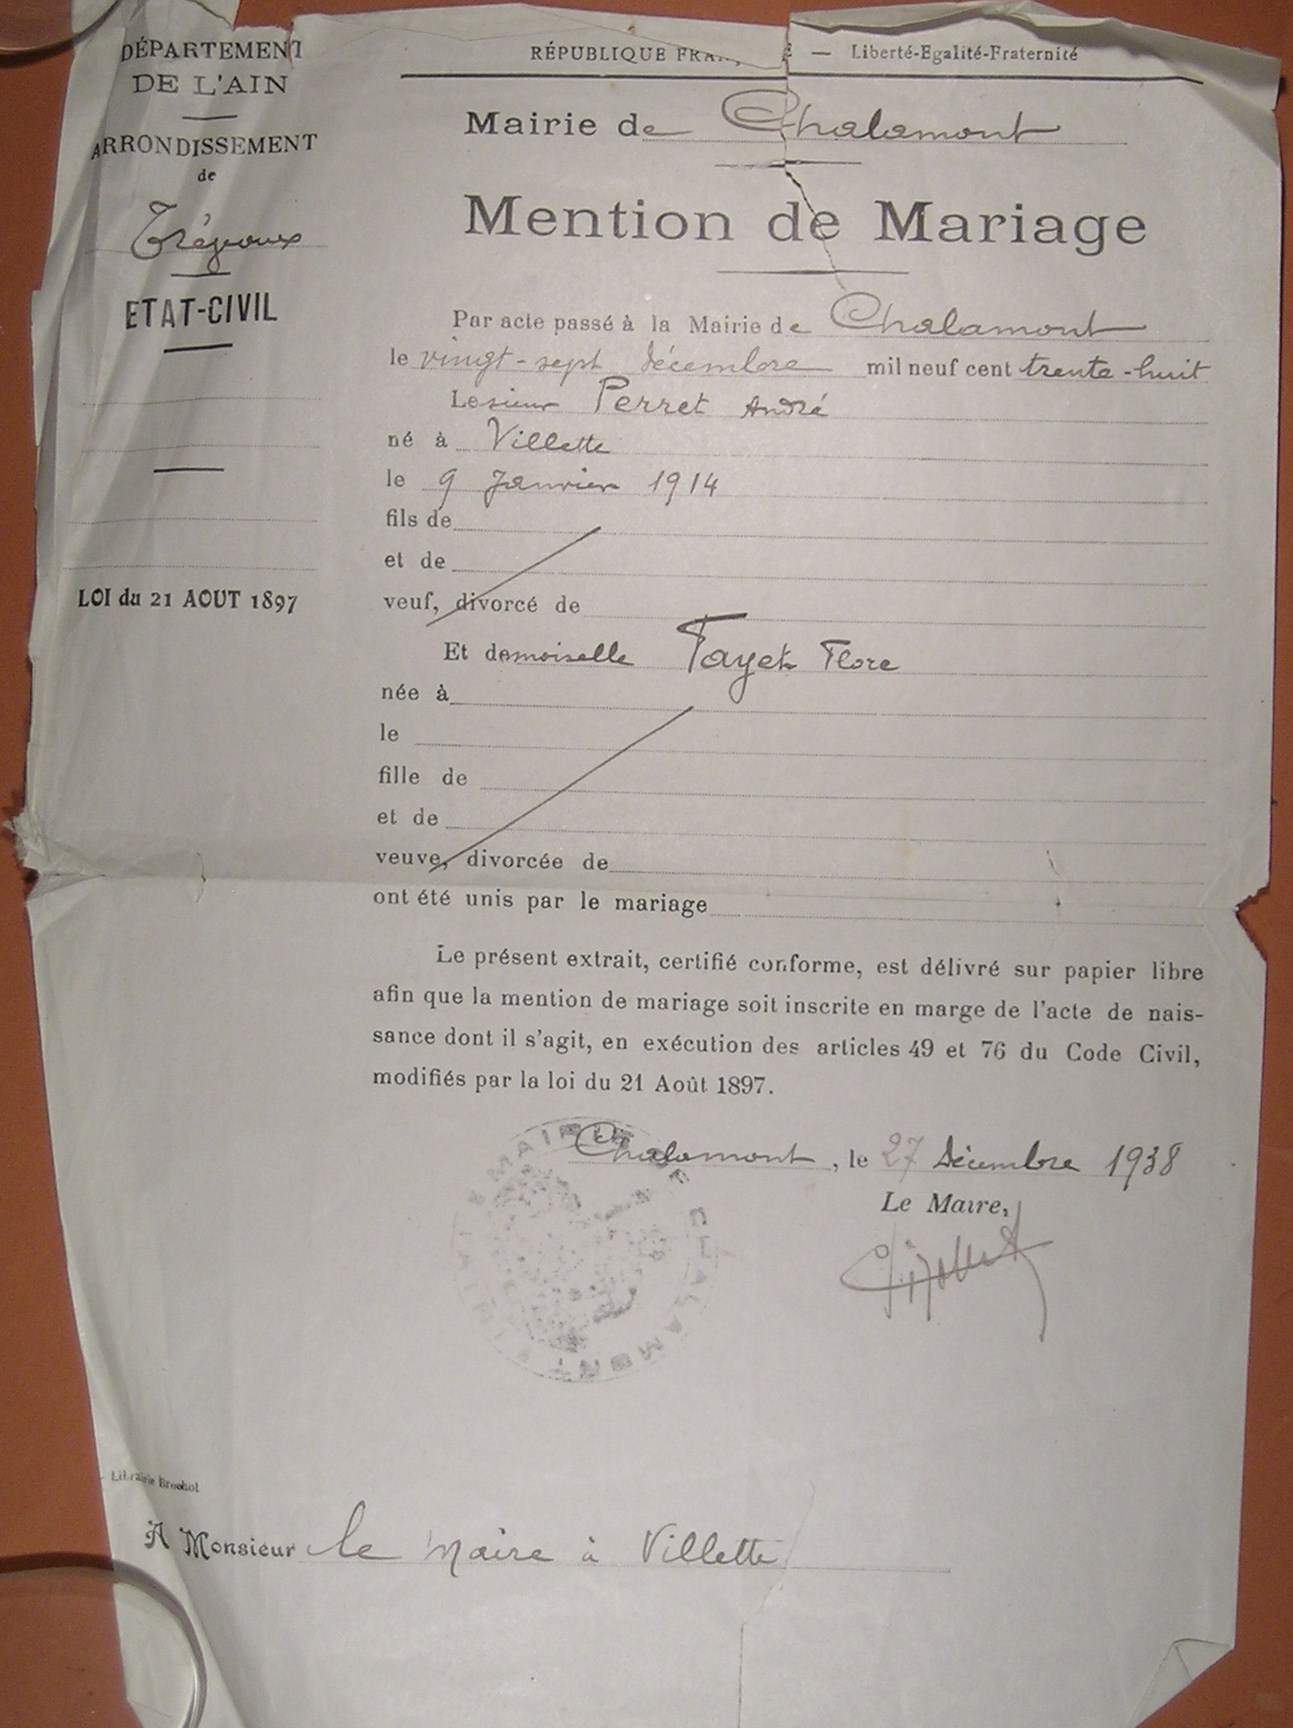 DÉPARTEMENT
DE L'AIN
ARRONDISSEMENT
de
Trévoux
ETAT-CIVIL
LOI du 21 AOUT 1897
RÉPUBLIQUE FRANÇAISE — Liberté-Egalité-Fraternité
Mairie de Chalamont
Mention de Mariage
Par acte passé à la Mairie de Chalamont
le vingt-sept décembre mil neuf cent trente-huit
Le sieur Perret André
né à Villette
le 9 Janvier 1914
fils de
et de
veuf, divorcé de
Et demoiselle Fayet Flore
née à
le
fille de
et de
veuve, divorcée de
ont été unis par le mariage
Le présent extrait, certifié conforme, est délivré sur papier libre
afin que la mention de mariage soit inscrite en marge de l'acte de nais-
sance dont il s'agit, en exécution des articles 49 et 76 du Code Civil,
modifiés par la loi du 21 Août 1897.
Chalamont, le 27 Décembre 1938
Le Maire,
MAIRIE DE CHALAMONT
Librairie
A Monsieur le Maire à Villette